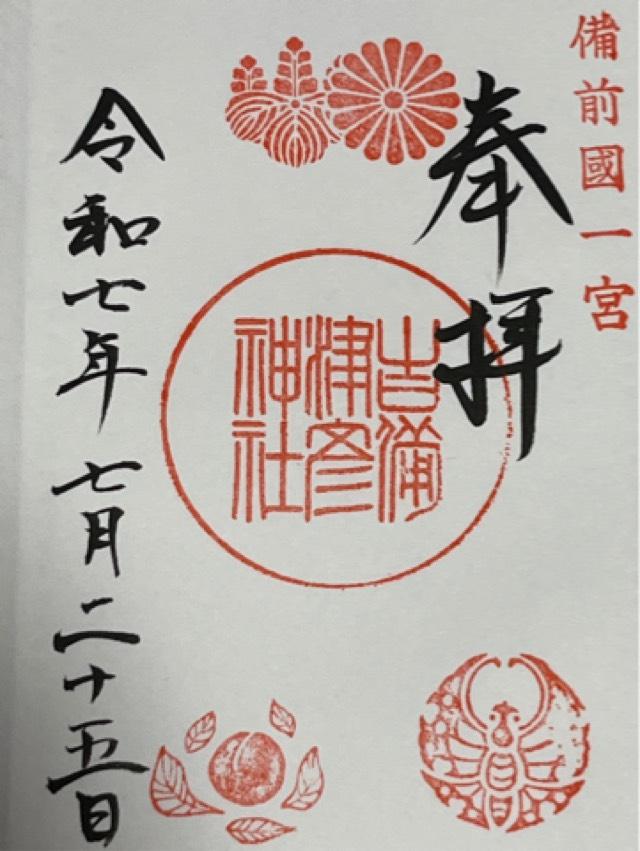 備前國一宮
奉拝
吉備
津彦
神社
令和七年七月二十五日